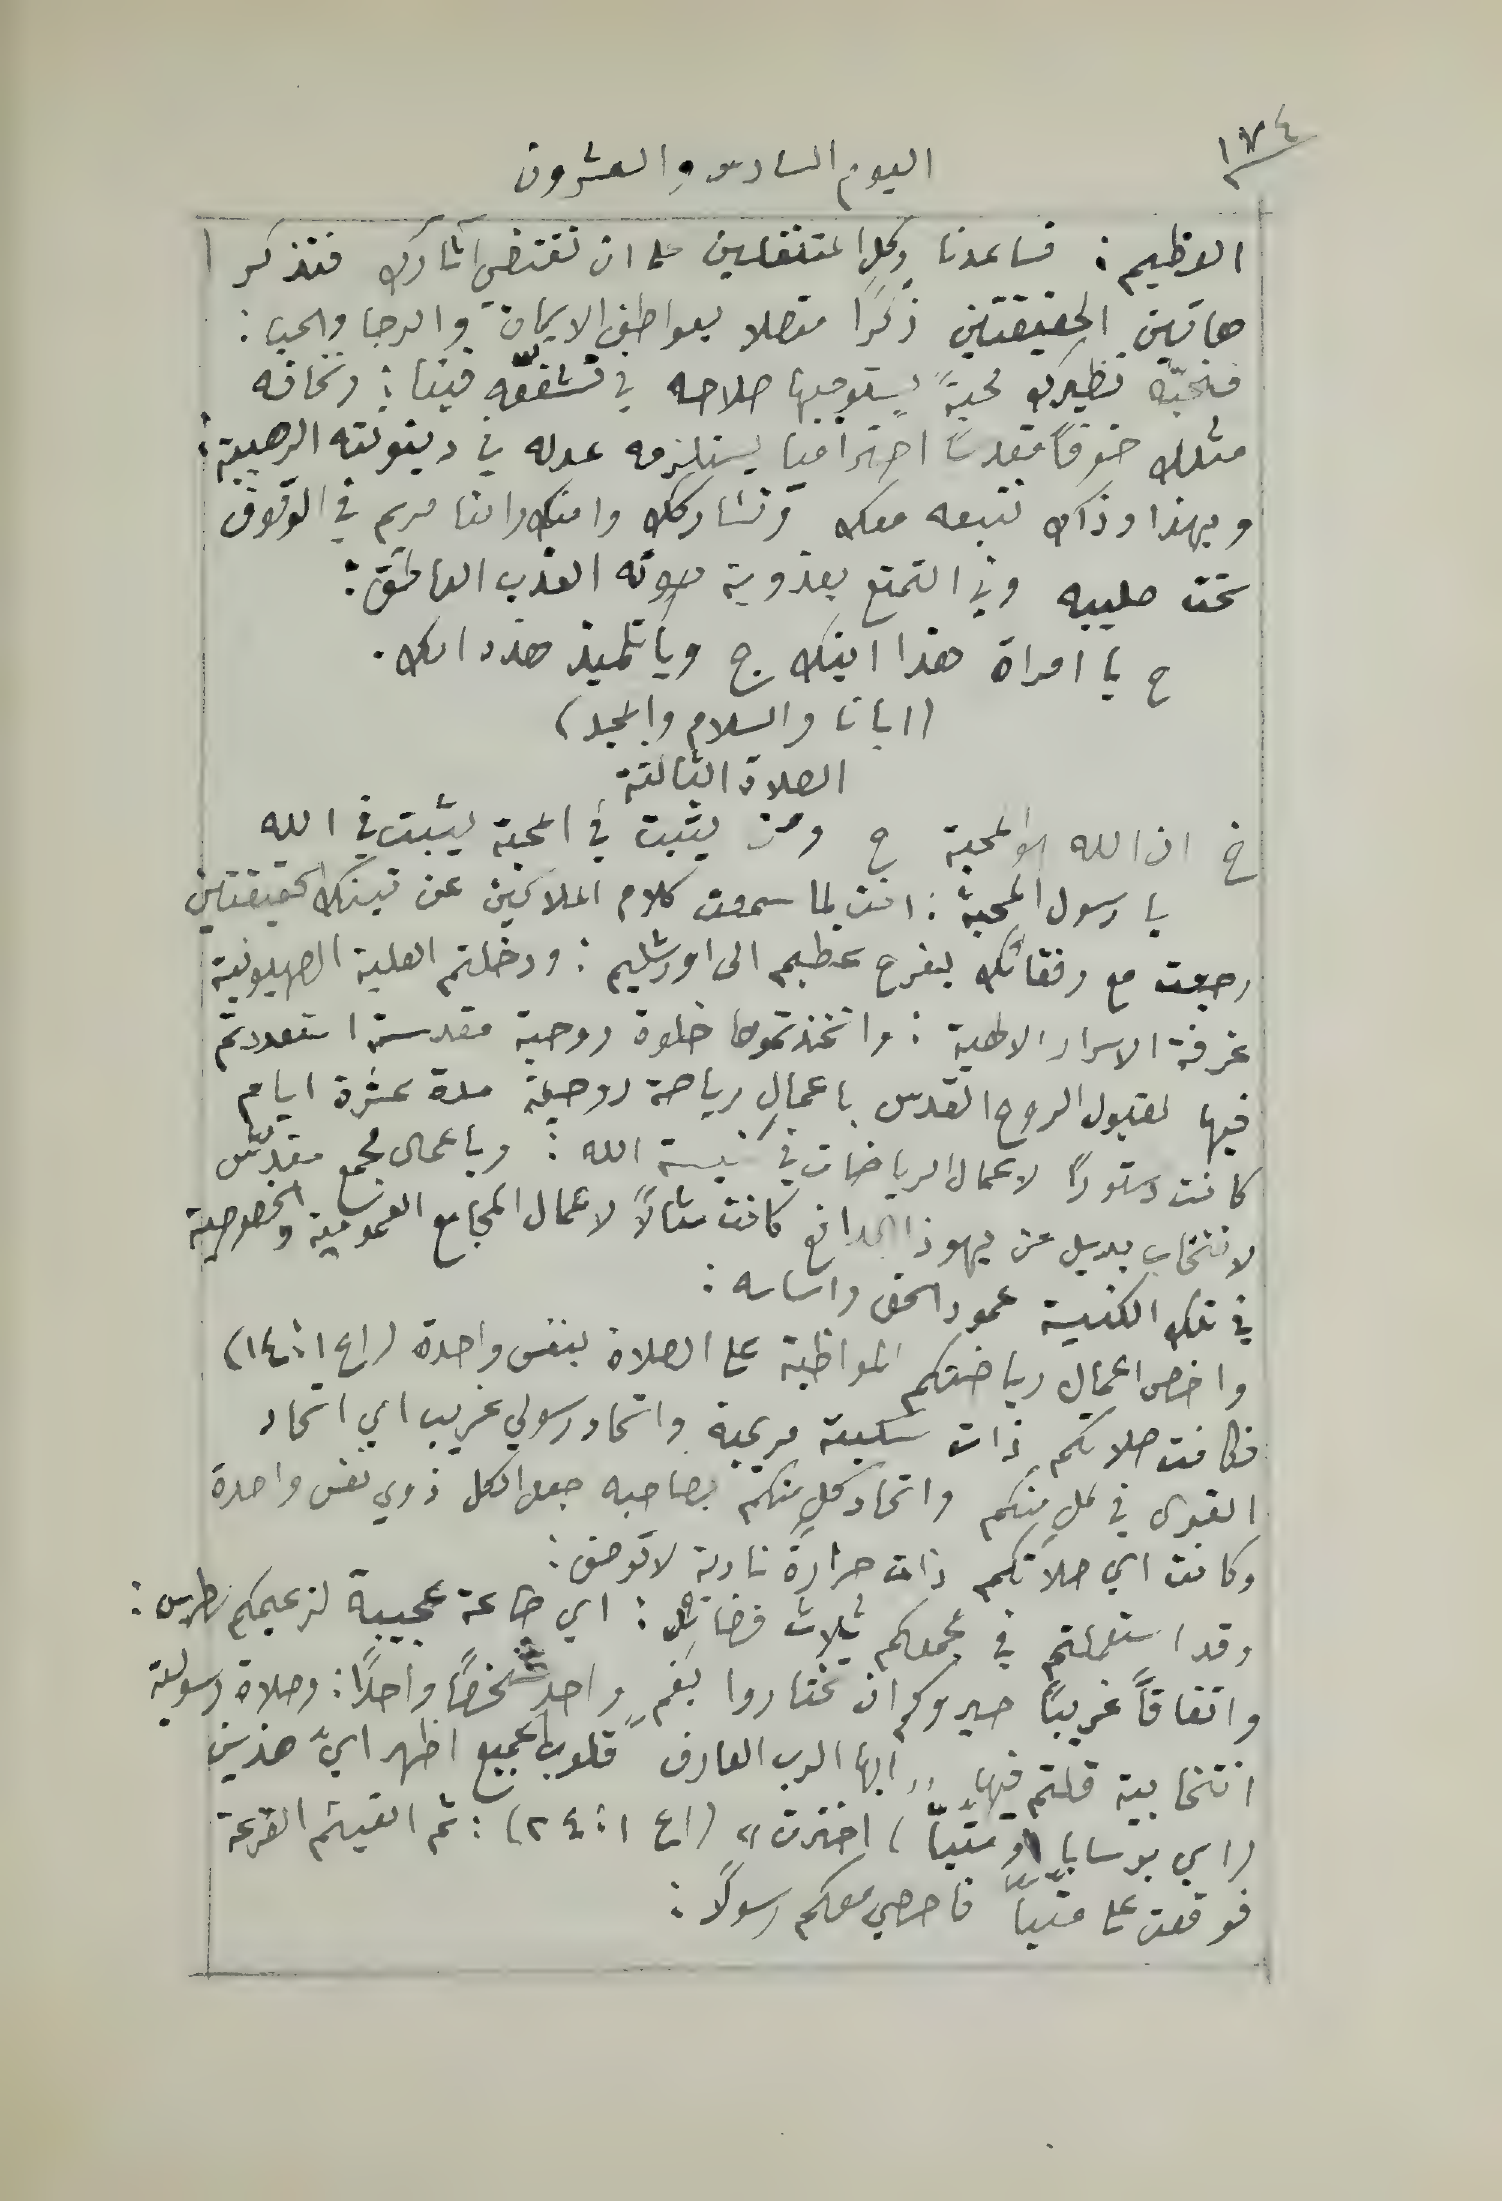 ١٧٤
اليوم السادس والعشرون
العظيم : فساعدنا وكل المتنفلين على ان نقتفي آثارك فنتذكر
هاتين الحقيقتين ذكرًا متصلا بعواطف الايمان والرجا والحب :
فنحبّه نظيرك محبةً يستوجبها صلاحه في تشفعّه فينا : ونخافه
مثلك خوفًا مقدسًا احترافنا يستلزمه عدله في دينونته الرهيبة :
وبهذا وذاك نتبعه معك ونشاركك وامك وامنا مريم في الوقوف
تحت صليبه وفي التمتع بعذوبة صوته العذب العاطق :
ح يا امراة هذا ابنك ج ويا تلميذ هذه امك .
(ابانا والسلام والمجد)
الصلاة الثالثة
خ ان الله هو المحبة ج ومن يثبت في المحبة يثبت في الله
يا رسول المحبة : انت لما سمعت كلام الملاكين عن تينك الحقيقتين
رجعت مع رفقائك بفرح عظيم الى اورشليم : ودخلتم العلية الصهيونية
غرفة الاسرار الالهية : واتخذتموها خلوة روحية مقدسة استعددتم
فيها لقبول الروح القدس باعمال رياضة روحية مدة عشرة ايام
كانت دستورًا لاعمال الرياضات في كنيسة الله : وباعمال مجمع مقدّس
لانتخاب بديل عن يهوذا الدافع كانت مثالًا لاعمال المجامع العمومية والخصوصية
في تلك الكنيسة عمود الحق واساسه :
واخص اعمال رياضتكم المواظبة على الصلاة بنفس واحدة (اع ١ : ١٤)
فكانت صلاتكم ذات سكينة مريمية واتحاد رسولي غريب اي اتحاد
القوى في كل منكم واتحاد كلٍ منكم بصاحبه جعل الكل ذوي نفس واحدة
وكانت اي صلاتكم ذات حرارة نارية لا توصف :
وقد استعملتم في مجمعكم ثلاث فضائل : اي طاعة عجيبة لزعيمكم بطرس :
واتفاقًا غريبًا صيروكم ان تختاروا بفمٍ واحدٍ شخصًا واحدًا : وصلاة رسولية
انتخابية قلتم فيها „ ايها الرب العارف قلوب الجميع اظهر ايّ هذين
(اي برسابا او متيّا) اخترت „ (اع ١ : ٢٤) : ثم القيتم القرعة
فوقعت على متيّا فاحصي معكم رسولًا :